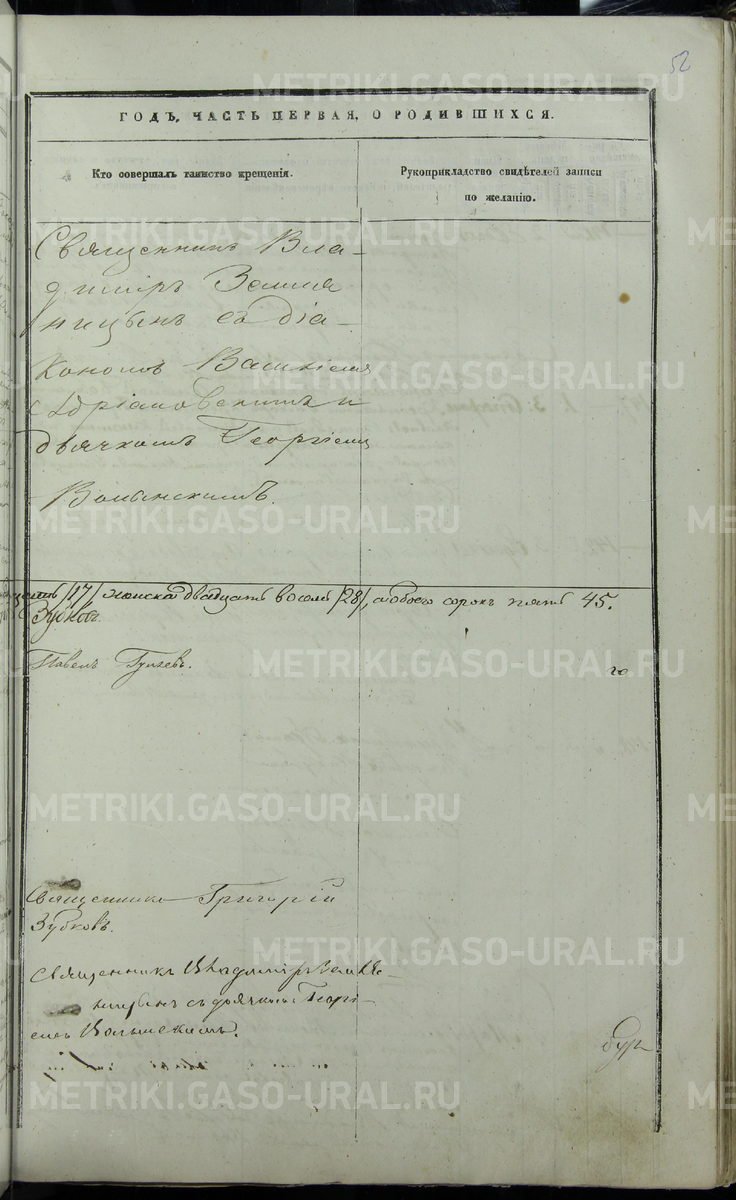 52
METRIKI.GASO-URAL.RU
ГОДЪ, ЧАСТЬ ПЕРВАЯ, О РОДИВШИХСЯ.
Кто совершалъ таинство крещенія.
Рукоприкладство свидѣтелей записи
по желанію.
Священникъ Вла-
диміръ Земля
ницынъ съ діа-
кономъ Василіемъ
Адріановскимъ и
дьячкомъ Георгіемъ
Волынскимъ.
/17/ женска двадцать восемь /28/, а обоего сорокъ пять 45.
Зубковъ.
Павелъ
го
Священникъ Григорій
Зубковъ.
Священникъ Владиміръ Земля-
ницынъ съ дьячкомъ Георгі-
емъ Волынскимъ.